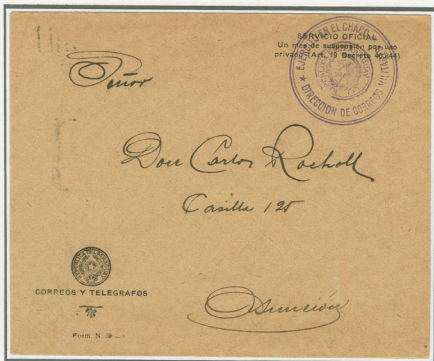 SERVICIO OFICIAL
Un mes de suspensión por uso
privado (Art. 19 Decreto 40,844)
EJERCITO EN EL CHACO
DIRECCION DE CORREOS
MILITAR
Señor
Don Carlos Rocholl
Casilla 125
CORREOS Y TELEGRAFOS
Form. N
Asunción